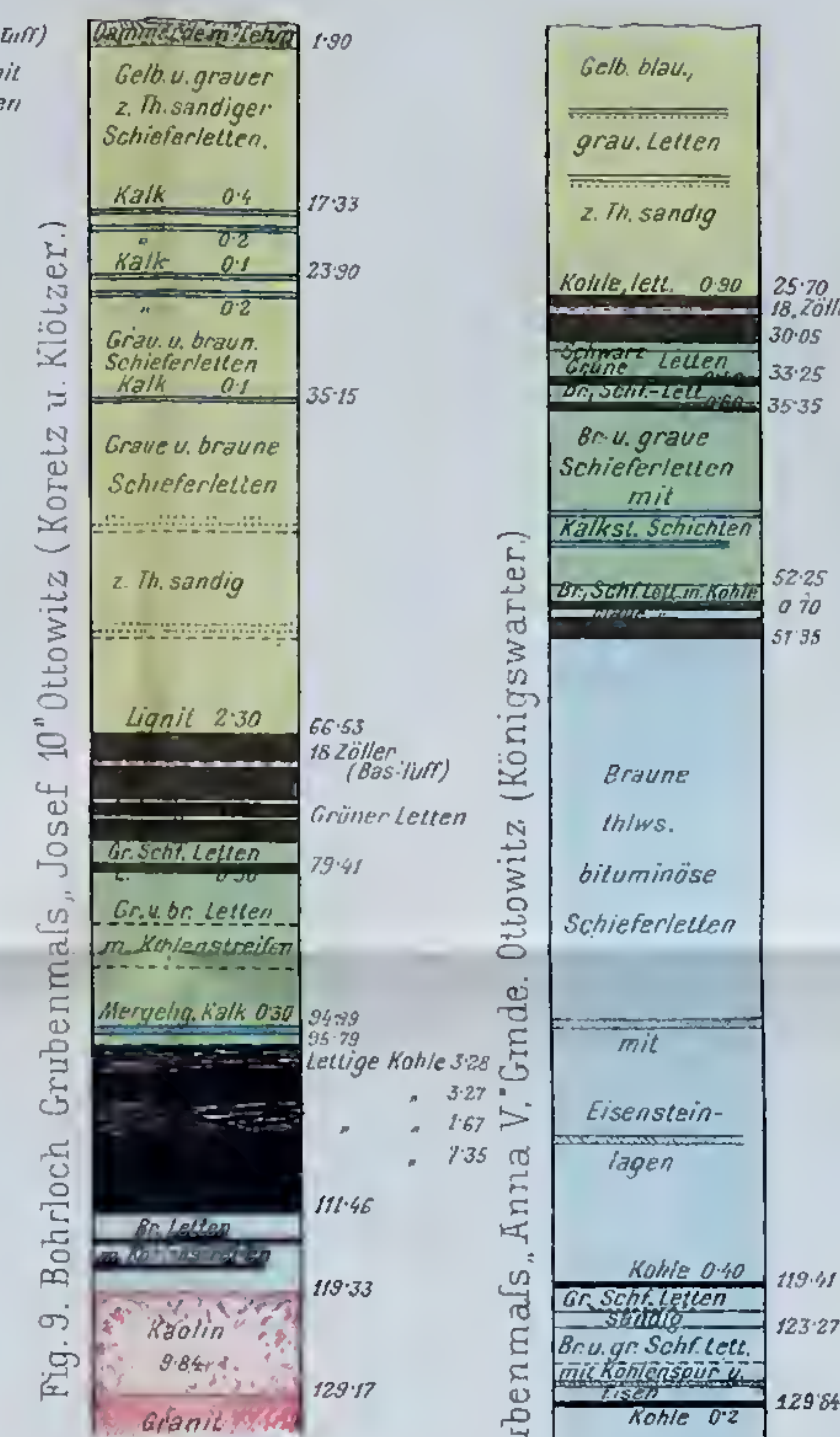 Tuff)
Fig. 9. Bohrloch Grubenmaſs „Josef 10" Ottowitz (Koretz u. Klötzer.)
Dammerde m. Lehm 1·90
Gelb. u. grauer
z. Th. sandiger
Schieferletten.
Kalk 0·4 17·33
" 0·2
Kalk 0·1 23·90
" 0·2
Grau. u. braun.
Schieferletten
Kalk 0·1 35·15
Graue u. braune
Schieferletten
z. Th. sandig
Lignit 2·30 66·53
18 Zöller
(Bas·tuff)
Grüner Letten
Gr. Schf. Letten
79·41
Gr. u. br. Letten
m. Kohlenstreifen
Mergelig. Kalk 0·30 94·99
95·79
Lettige Kohle 3·28
" 3·27
" " 1·67
" 7·35
111·46
Br. Letten
m. Kohlenstreifen
119·33
Kaolin
9·84
129·17
Granit
ubenmaſs „Anna V," Gmde. Ottowitz (Königswarter.)
Gelb. blau.,
grau. Letten
z. Th. sandig
Kohle, lett. 0·90 25·70
18. Zöll
30·05
Schwarz
Grüne Letten
33·25
Br, Schf.-Lett. 0·60 35·35
Br. u. graue
Schieferletten
mit
Kalkst. Schichten
52·25
Br, Schf. Lett. m. Kohle
0·70
Braune
thlws.
bituminöse
Schieferletten
mit
Eisenstein-
lagen
Kohle 0·40 119·41
Gr. Schf. Letten
sandig 123·27
Br. u. gr. Schf. Lett.
mit Kohlenspur u.
Eisen
129·64
Kohle 0·2